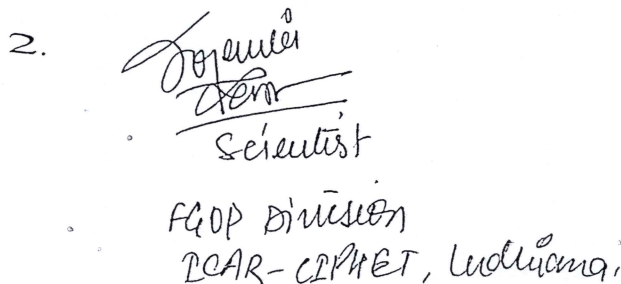 2.
Scientist
FGOP Division
ICAR-CIPHET, Ludhiana.